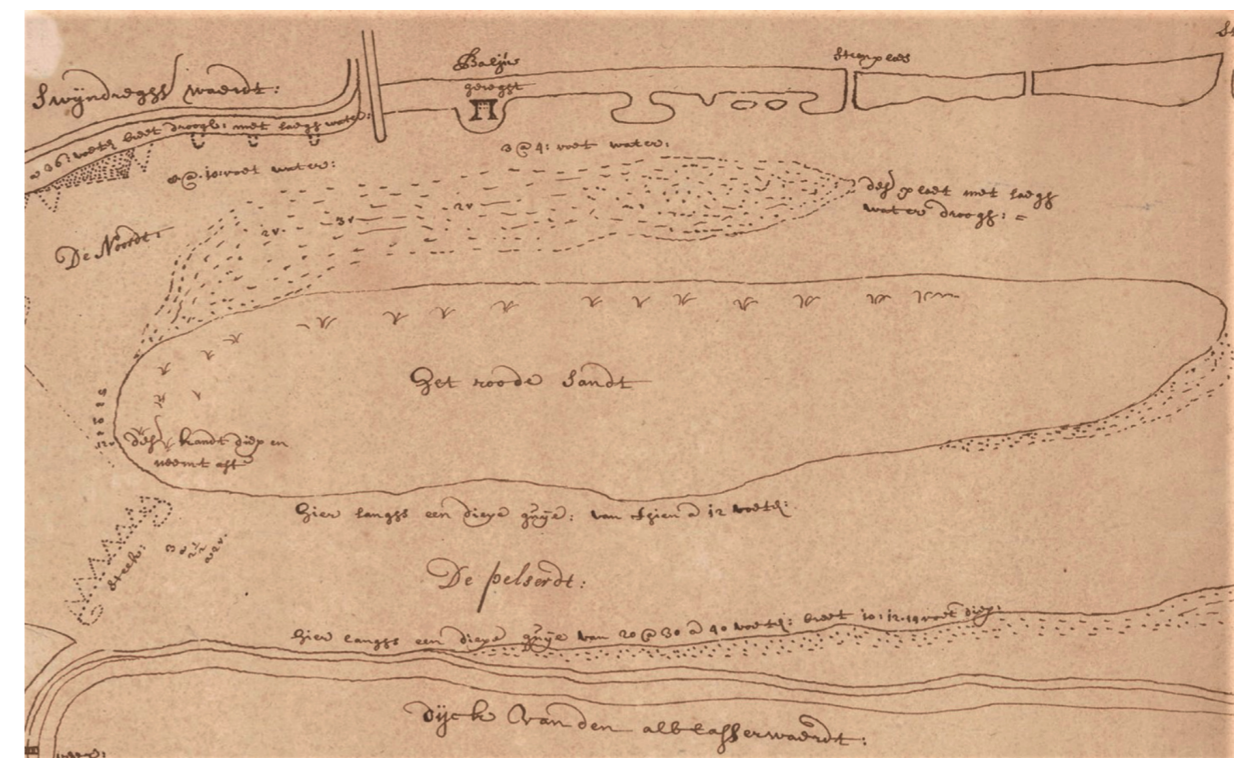 St
Swijndreghs waerdt:
Baljus
geregst
à 36: voete breet drooght met laegh water:
8 @. 10: voet water:
3 @ 4: voet water:
2v
3v
2v
des plaet met laegh
water droogh: =
De Noordt:
Het roode Sandt
des kandt diep en
neemt aff
Hier langhs een diepe guije: van thien à 12 voete:
Steck:
De pelserdt:
Hier langhs een diepe guije van 20 @ 30 à 40 voete: breet 10: 12: 14 voet diep:
Dijck Van den alblasserwaerdt: